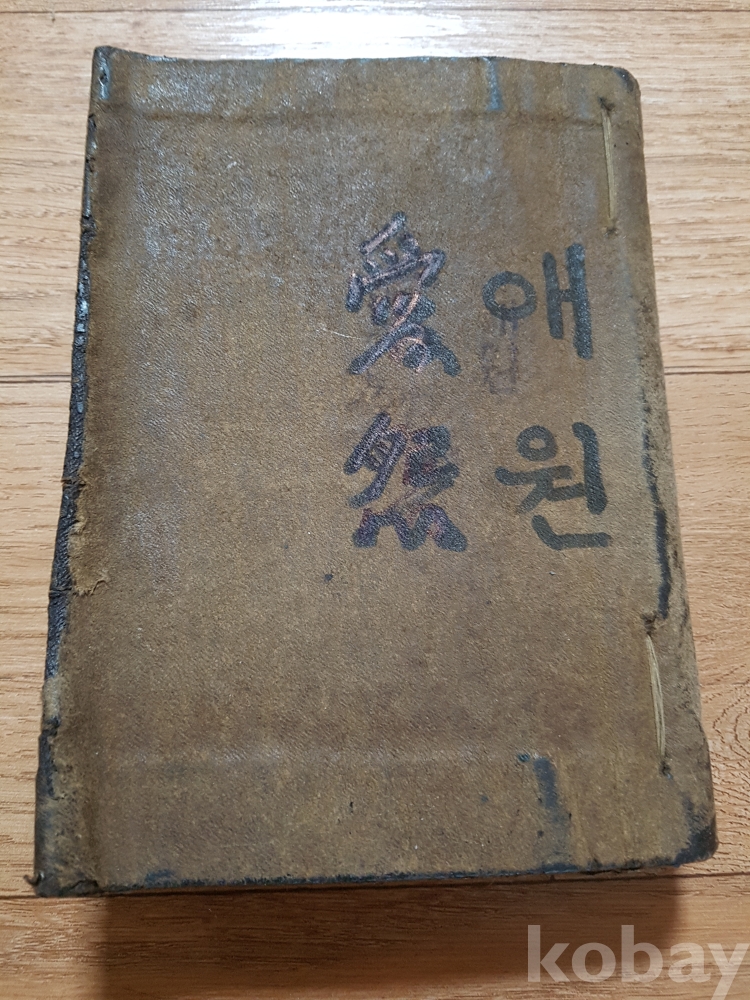 애원
愛怨
kobay